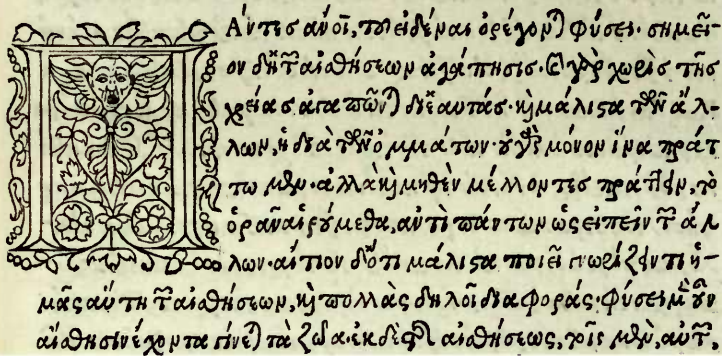 Πάντες ἄνοι, τοῦ εἰδέναι ὀρέγονται φύσει· σημεῖ-
ον δὴ τῶν αἰσθήσεων ἀγάπησις. καὶ γὰρ χωρὶς τῆς
χρείας ἀγαπῶνται δι' ἑαυτάς· καὶ μάλιστα τῶν ἄλ-
λων, ἡ διὰ τῶν ὀμμάτων· οὐ γὰρ μόνον ἵνα πράτ
τωμεν· ἀλλὰ καὶ μηθὲν μέλλοντες πράττειν, τὸ
ὁρᾶν αἱρούμεθα, ἀντὶ πάντων ὡς εἰπεῖν τῶν ἄλ
λων· αἴτιον δ' ὅτι μάλιστα ποιεῖ γνωρίζειν τι ἡ-
μᾶς αὕτη τῶν αἰσθήσεων, καὶ πολλὰς δηλοῖ διαφοράς· φύσει μὲν οὖν
αἴσθησιν ἔχοντα γίνεται τὰ ζῶα· ἐκ δὲ τῆς αἰσθήσεως, τοῖς μὲν, αὐτῶν,